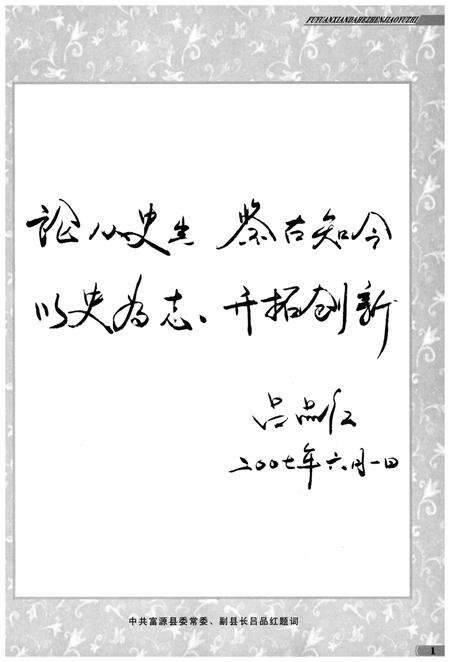 FUYUANXIANDAHEZHENJIAOYUZHI
论从史出 鉴古知今
以史为志、开拓创新
吕品红
二00七年六月一日
中共富源县委常委、副县长吕品红题词
1